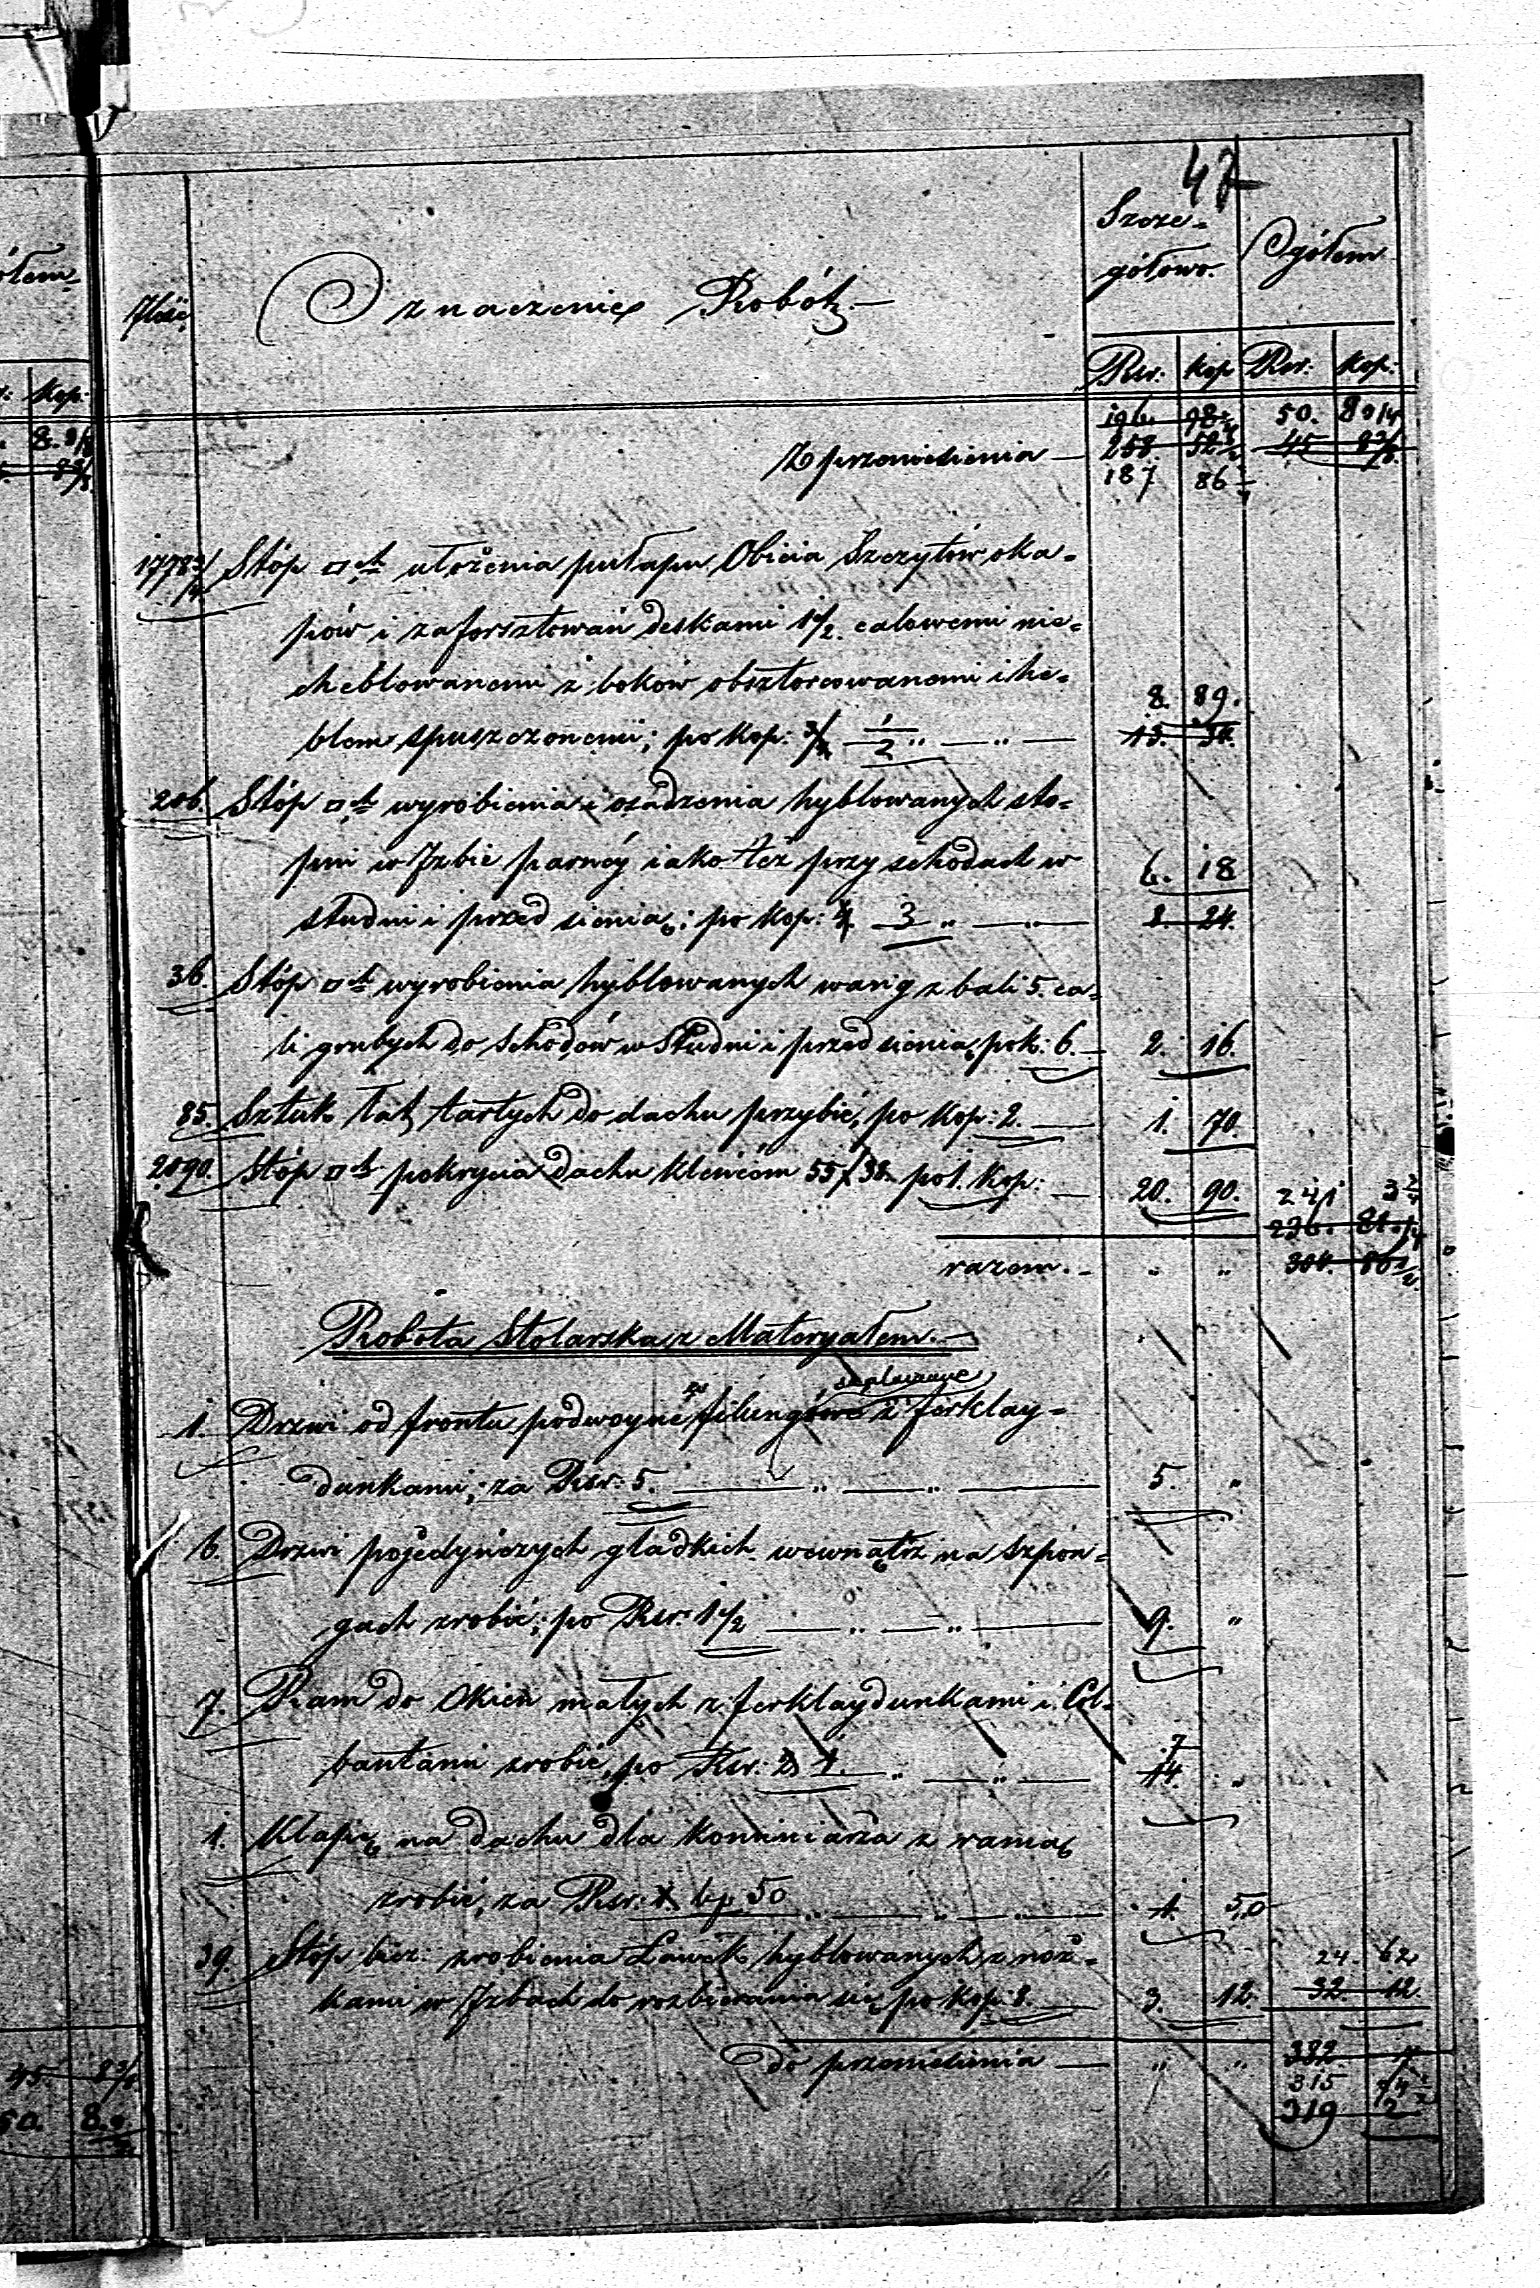 47
Szcze-
gółowo. Ogółem
Ilość Oznaczenie Robót.
Rsr: kop Rsr: kop:
196. 98 50. 8 9/4
Z przeniesienia 258. 52 45 8
187 86
1778 3/4 Stóp □ch ułożenia pułapu, Obicia Szczytów oka-
pów i zaforsztowań deskami 1 1/2 calowemi nie-
cheblowanemi z boków obsztorcowanemi i he- 8. 89.
blem spuszczonemi; po kop: 3/4 1/2 " " 13. 34.
206. Stóp □ch wyrobienia i osadzenia hyblowanych sto-
pni w Izbie parnéy iako też przy schodach w 6. 18
studni i przed sienią; po kop: 4. 3 " " 8. 24.
36. Stóp □ch wyrobienia hyblowanych wang z bali 5. ca-
li grubych do Schodów w Studni i przed sienią, po k: 6. 2. 16.
85. Sztuk łat tartych do dachu przybić, po kop: 2. 1. 70.
2090. Stóp □ch pokrycia dachu kleńcem 55/38. po 1. kop: 20. 90. 241 3
236. 81
razem. " " 304. 86 1/2
Robota Stolarska z Materyałem.
1. Drzwi od frontu podwoyne, filungowe z ferklay-
dunkami; za Rsr: 5. " " 5. "
6. Drzwi pojedyńczych gładkich wewnątrz na szpon-
gach zrobić; po Rsr: 1 1/2 " " 9. "
7. Ram do Okien małych z ferklaydunkami i Col-
bantami zrobić, po Rsr: 2 1. " " 7 14. "
1. Klapę na dachu dla kominiarza z ramą
zrobić, za Rsr: 1. kp 50 " " " 1. 50
39. Stóp bież: zrobienia Ławek hyblowanych z noż- 24. 62
kami w Izbach do rozbierania się po kop: 8. 3. 12. 32. 12.
do przeniesienia " " 382
315
319 2